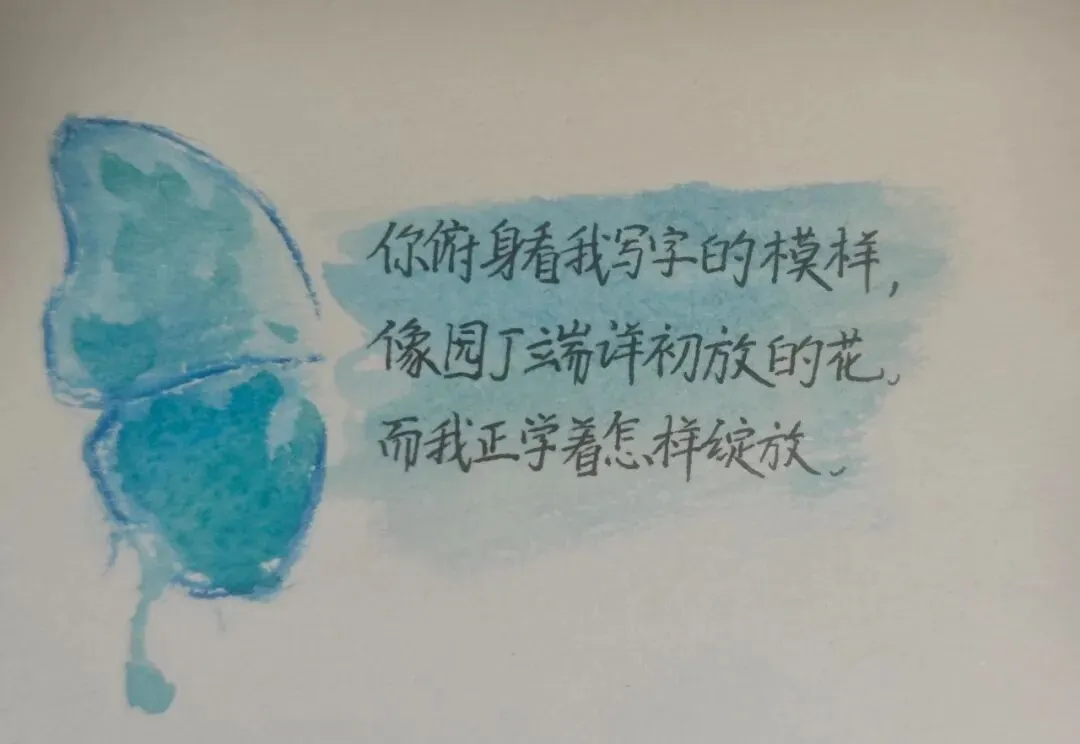 你俯身看我写字的模样,
像园丁端详初放的花。
而我正学着怎样绽放。